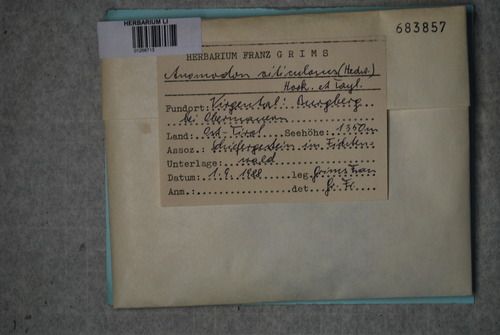 HERBARIUM LI
683857
HERBARIUM FRANZ GRIMS
Anomodon viticulosus (Hedw.)
Hook. et Tayl.
Fundort: Virgental: Burgberg
bei Obermauern
Land: Ost-Tirol Seehöhe: 1350m
Assoz.: Schiefergestein im Fichten-
Unterlage: wald
Datum: 1.9.1988 leg. Grims Franz
Anm.: det. Gr. Fr.